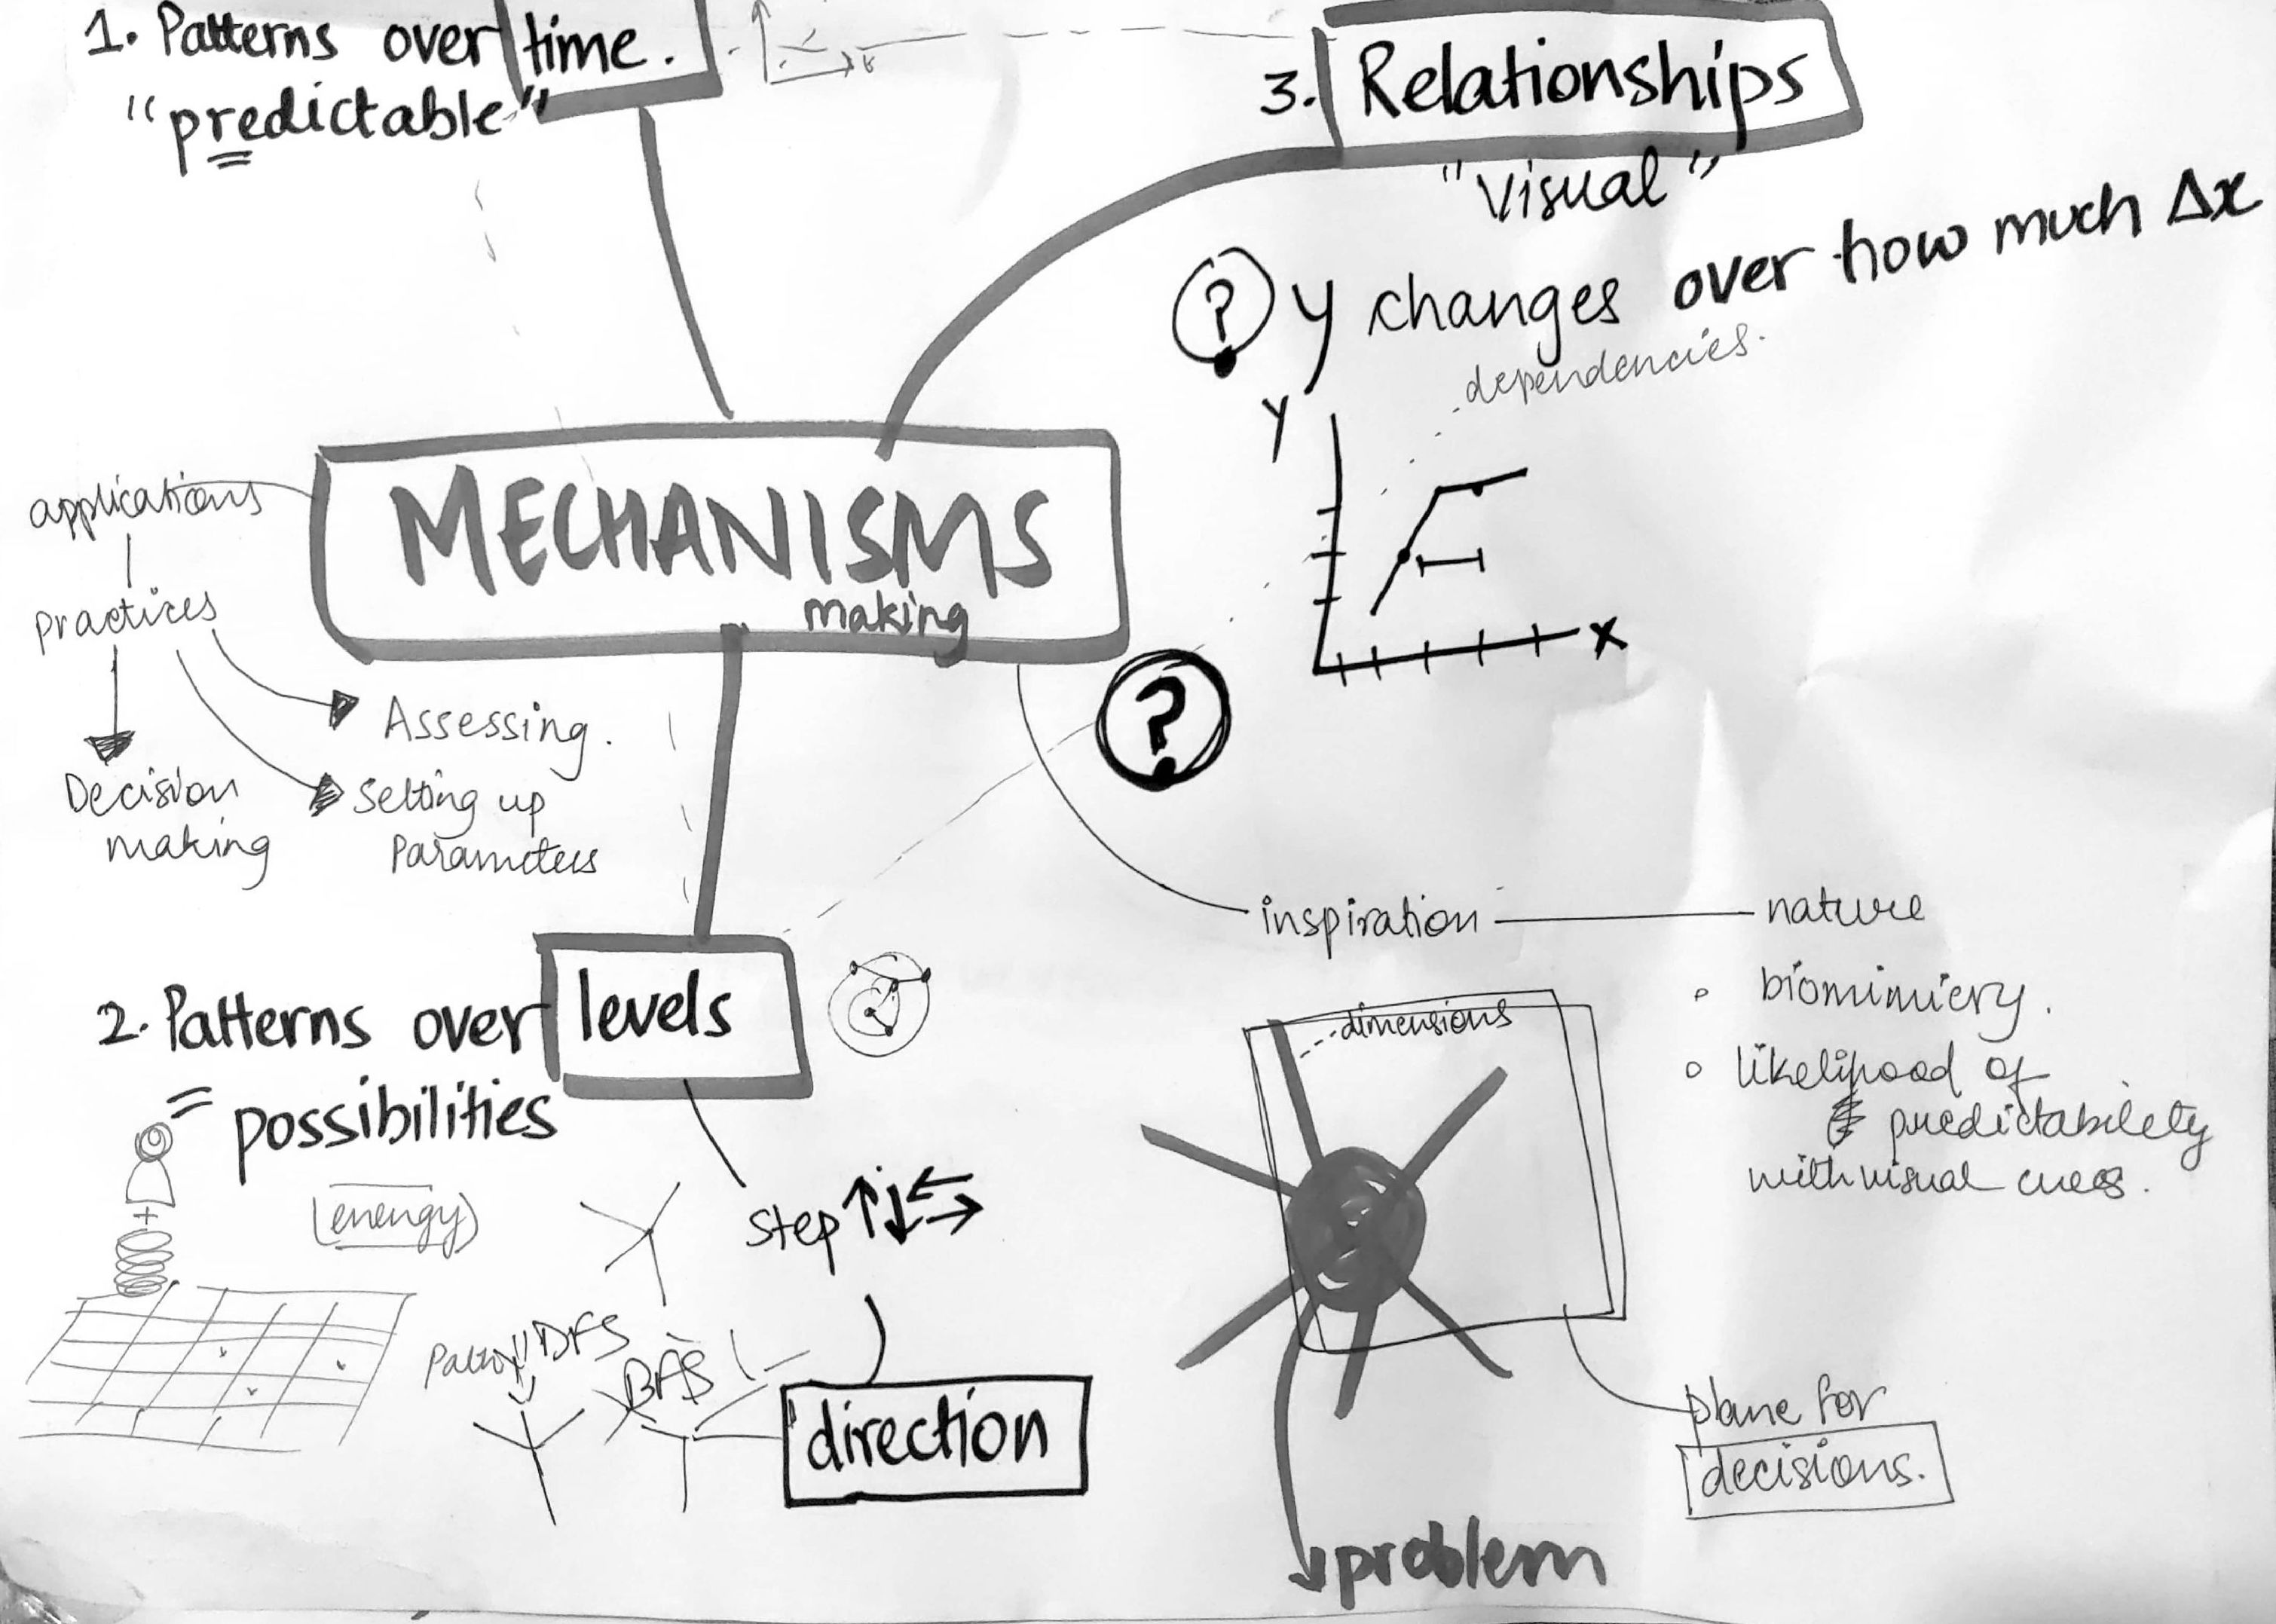 1. Patterns over time.
"predictable"
3. Relationships
"Visual"
? y changes over how much Δx
dependencies.
Y
X
MECHANISMS
making
applications
practices
Assessing.
Setting up
Parameters
Decision
making
?
inspiration
nature
biomimicry.
likelihood of
predictability
with visual cues.
2. Patterns over levels
= possibilities
(energy)
+
step ↑↓←→
DFS
BFS
direction
dimensions
plane for
decisions.
problem